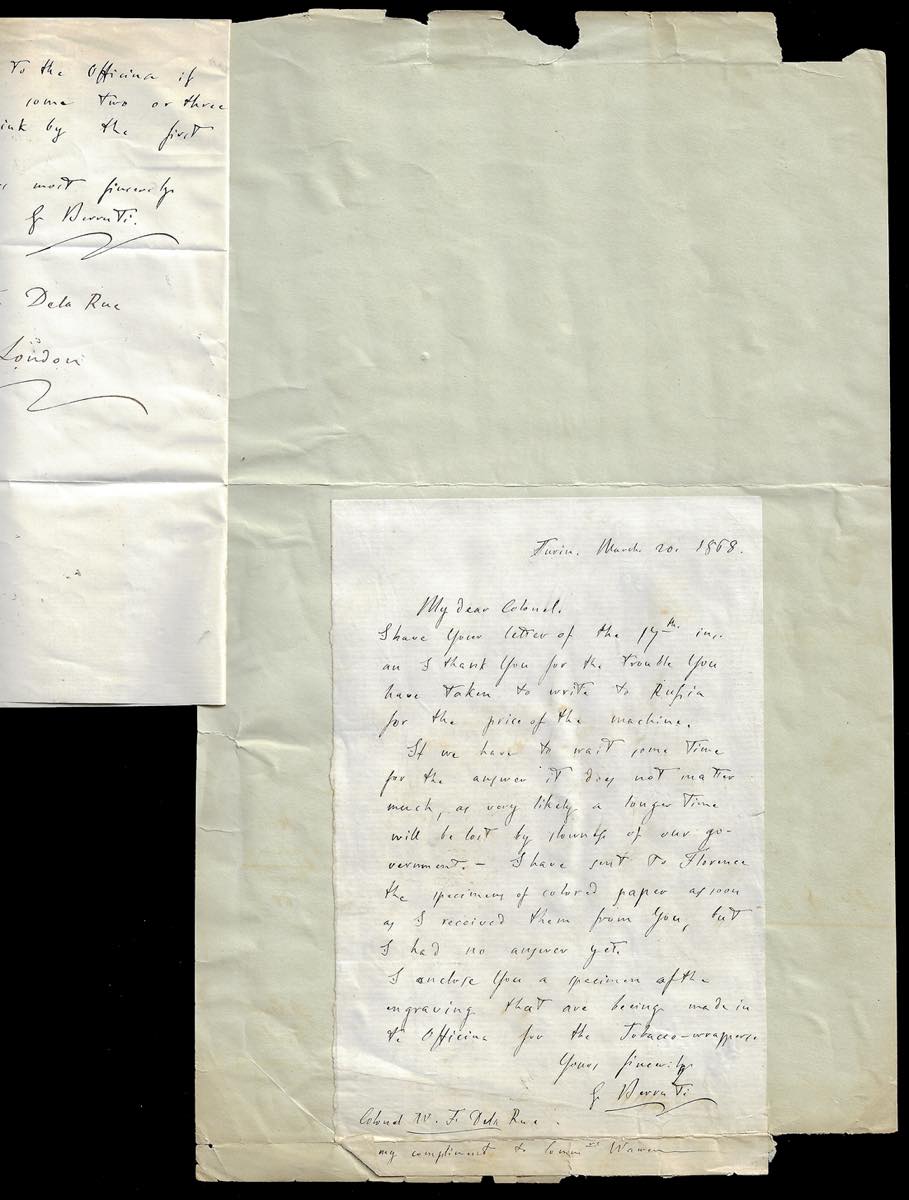 To the Officina if
some two or three
ink by the first
most sincerely
G Berruti.
Dela Rue
London
Turin. March 20. 1868.
My dear Colonel.
I have Your letter of the 17th ins.
an I thank You for the trouble You
have taken to write to Russia
for the price of the machine.
If we have to wait some time
for the answer it does not matter
much, as very likely a longer time
will be lost by slowness of our go-
vernment. – I have sent to Florence
the specimens of colored paper as soon
as I received them from You, but
I had no answer yet.
I enclose You a specimen of the
engraving that are being made in
te Officina for the Tobacco-wrappers
Yours sincerely
G Berruti
Colonel W. F. Dela Rue.
my compliment to